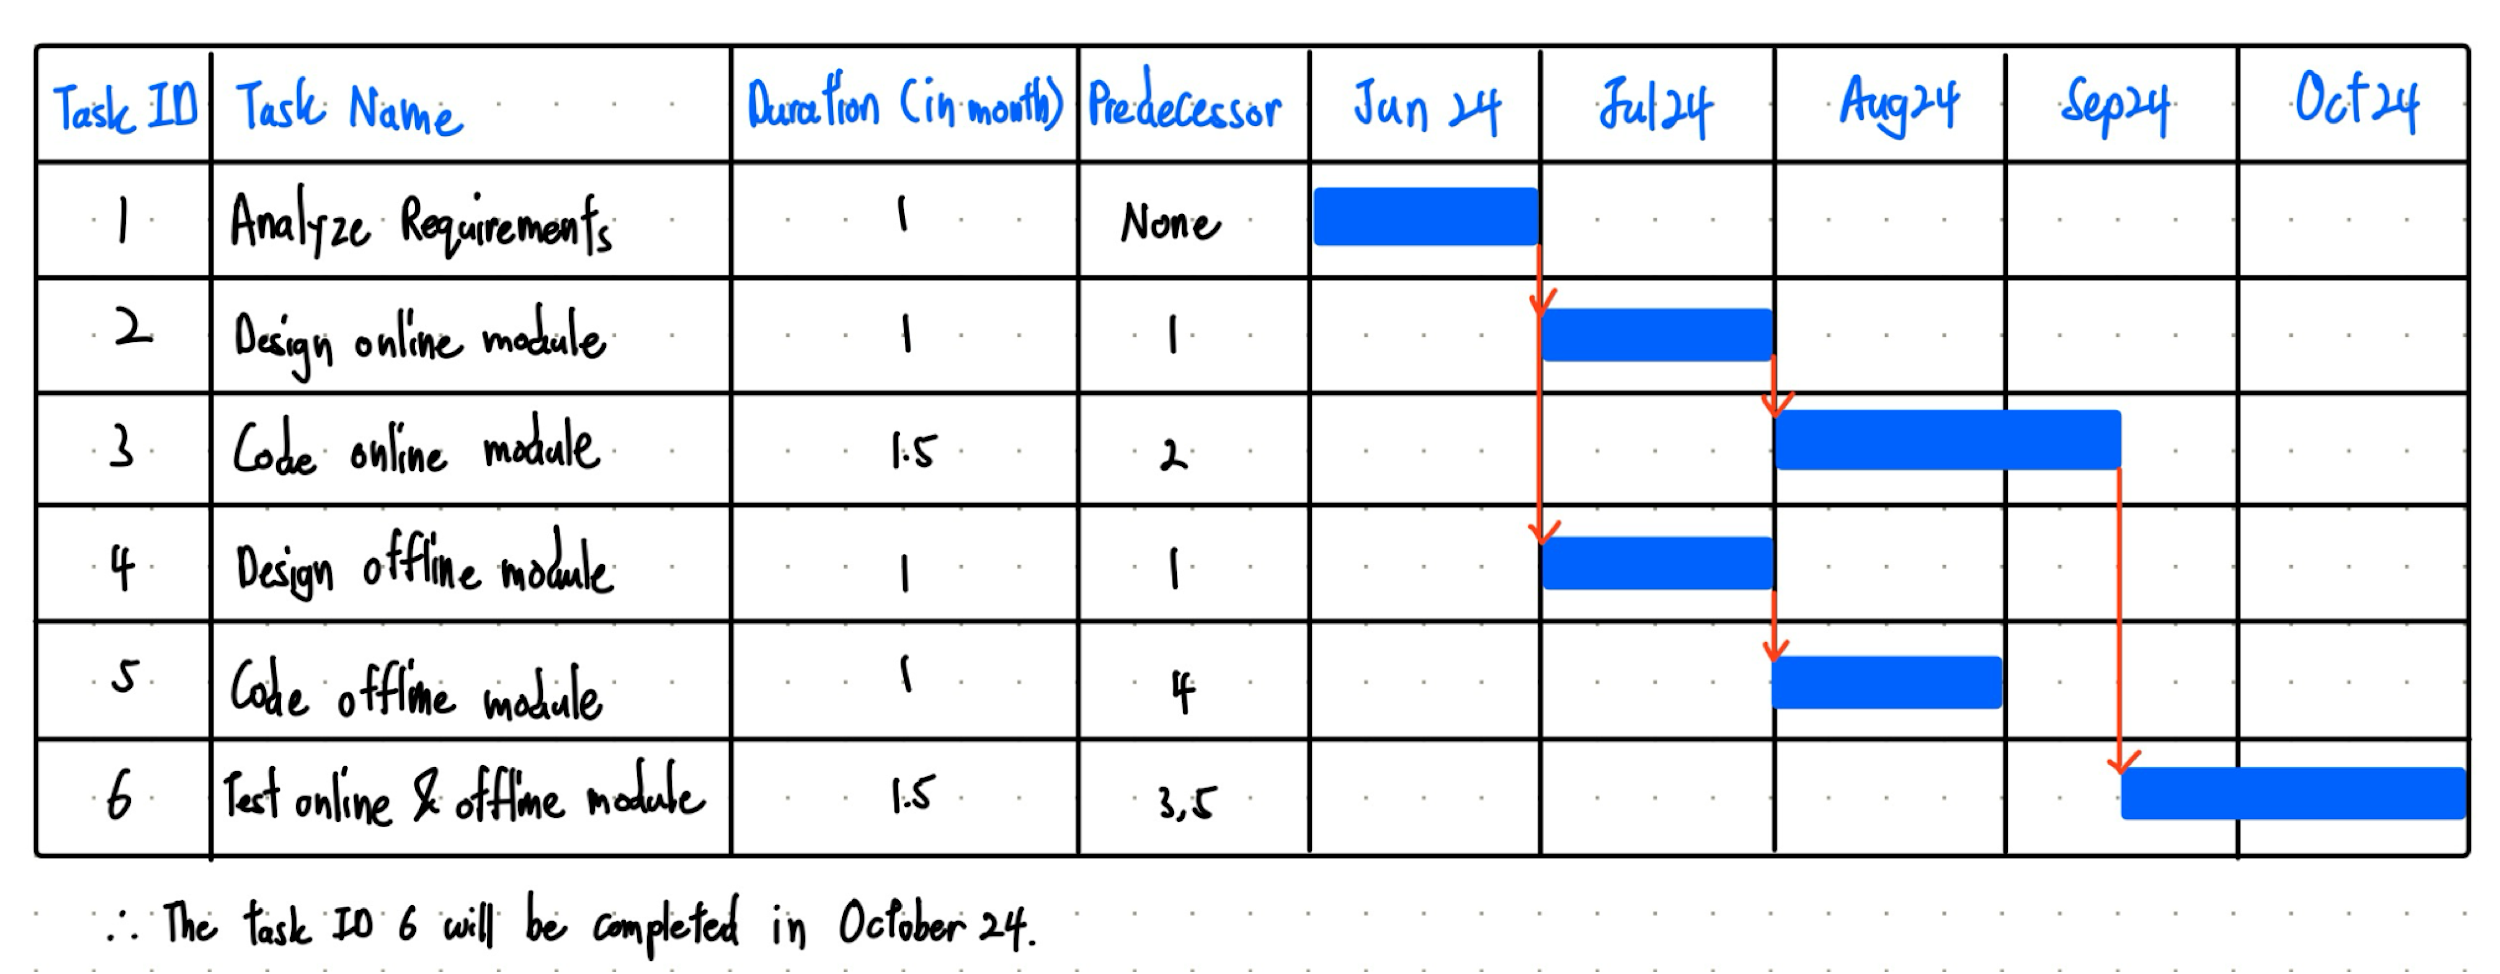 Task ID Task Name Duration (in month) Predecessor Jun 24 Jul24 Aug24 Sep24 Oct24
1 Analyze Requirements 1 None
2 Design online module 1 1
3 Code online module 1.5 2
4 Design offline module 1 1
5 Code offline module 1 4
6 Test online & offline module 1.5 3,5
∴ The task ID 6 will be completed in October 24.